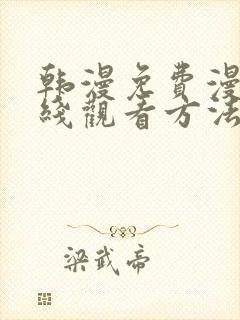 韩漫免费漫
线觀看方法
梁武帝